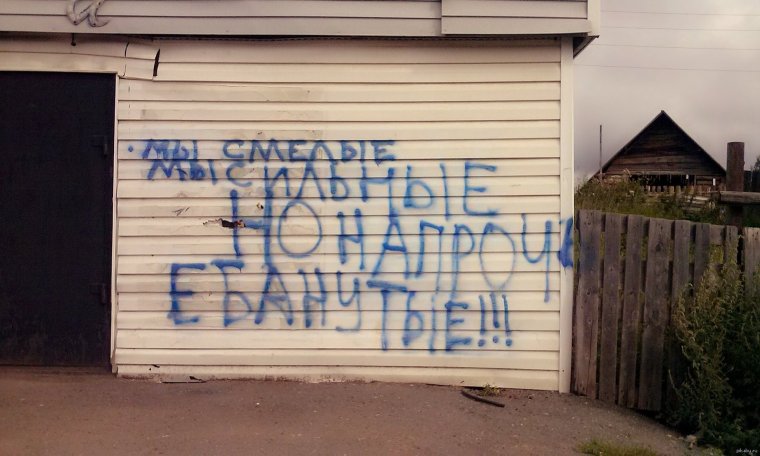 МЫ СМЕЛЫЕ
МЫ СИЛЬНЫЕ
НО НАПРОЧЬ
ЕБАНУТЫЕ!!!